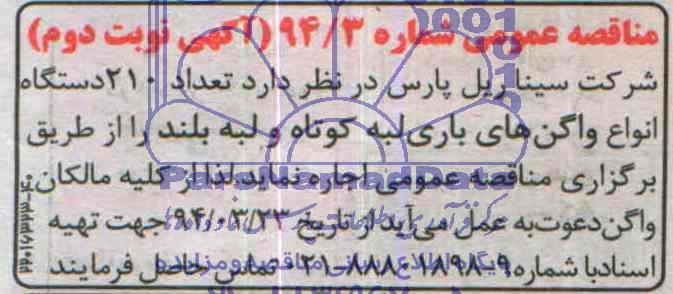 مناقصه عمومی شماره ۹۴/۳ (آگهی نوبت دوم)
شرکت سینا ریل پارس در نظر دارد تعداد ۲۱۰دستگاه
انواع واگن‌های باری‌لبه کوتاه و لبه بلند را از طریق
برگزاری مناقصه عمومی اجاره نماید.لذا از کلیه مالکان
واگن‌دعوت‌به عمل می‌آید از تاریخ ۹۴/۰۳/۲۳ جهت تهیه
اسنادبا شماره ۰۲۱-۸۸۸۰۱۸۹۸-۹ تماس حاصل فرمایند